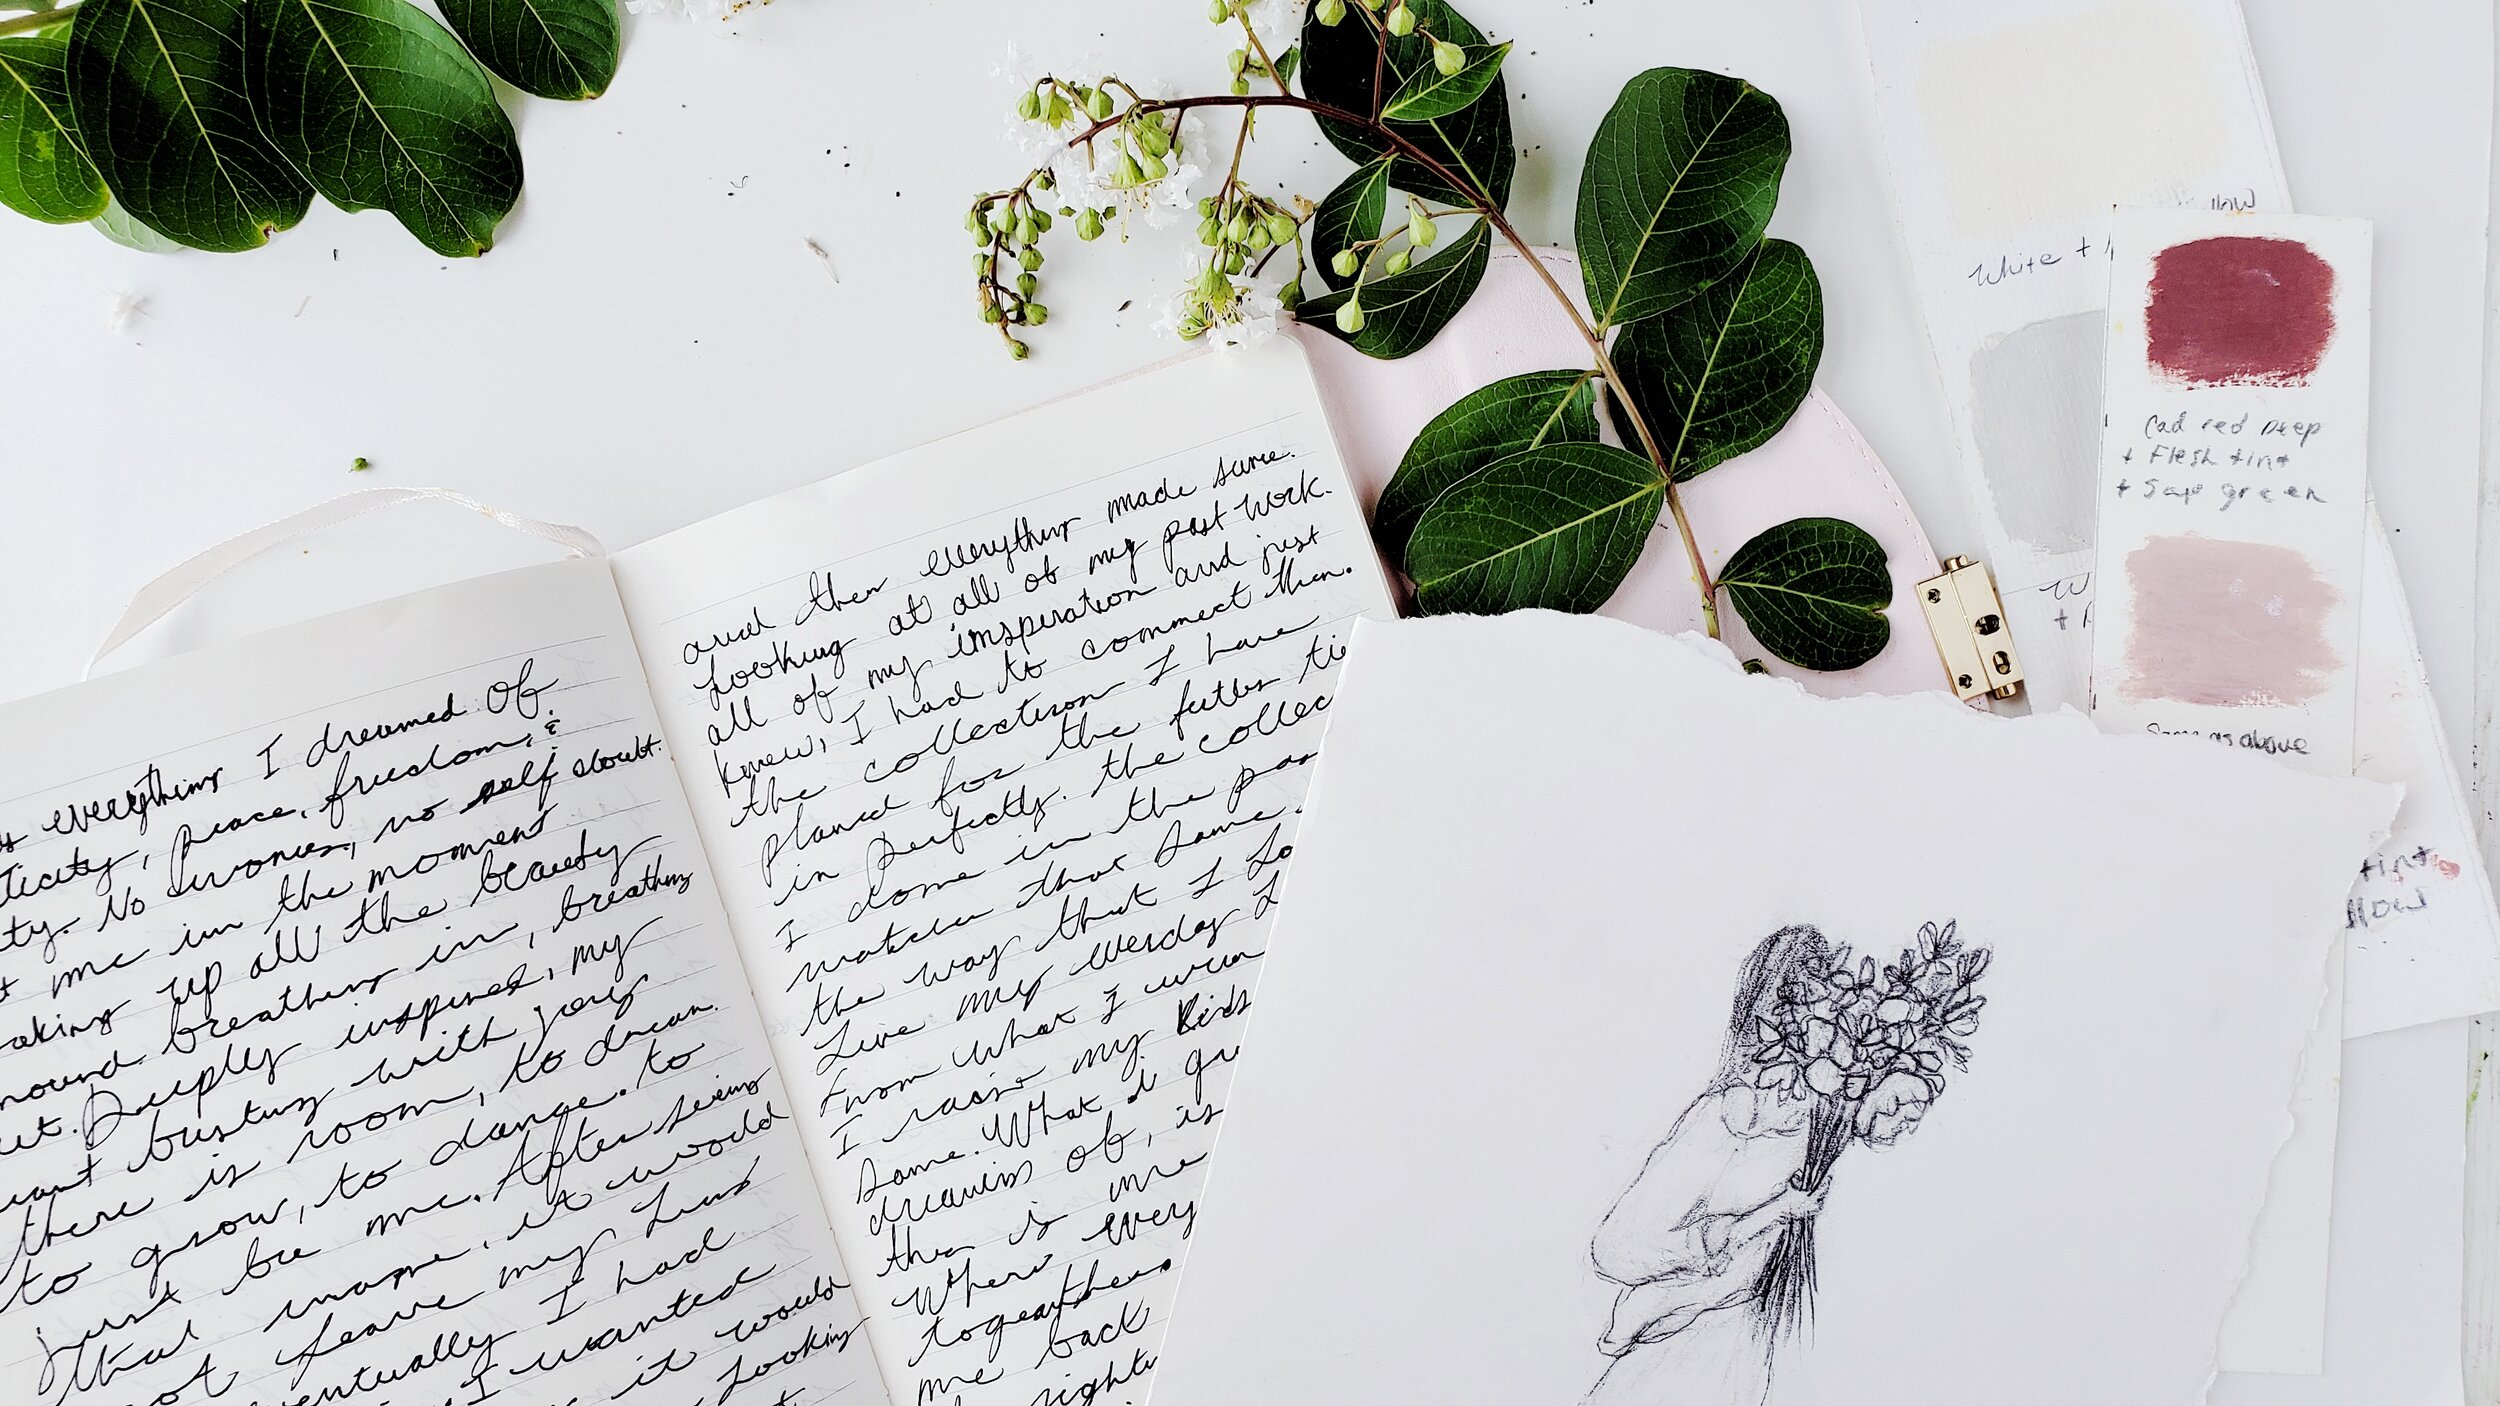 everything I dreamed of.
ticity, peace, freedom, &
ty. No worries, no self doubt.
me in the moment
aking up all the beauty
ound breathing in, breathing
ut. Deeply inspired, my
eart busting with joy
there is room, to dream.
to grow, to dance. to
just be me. After seeing
that name, it would
not leave my
eventually I had
I wanted
it would
Looking
and then everything made sense.
Looking at all of my past work.
all of my inspiration and just
knew, I had to connect them.
the collection I have
planed for the
in perfectly. the collec
I done in the pas
that same.
the way that I Lo
Live my everyday L
From what I
I raise my kids
Same. What I
dreams of, is
then is me
Where every
me back
right
White +
Cad red Deep
+ Flesh tint
+ Sap green
Same as above
tint